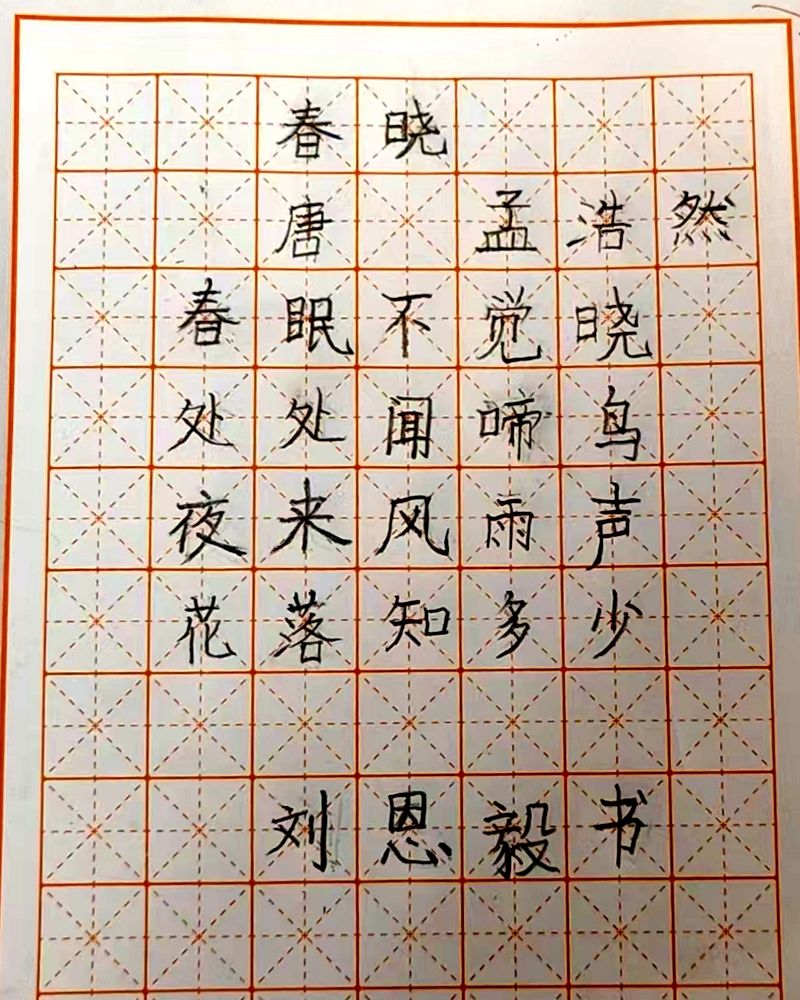 春晓
唐 孟浩然
春眠不觉晓
处处闻啼鸟
夜来风雨声
花落知多少
刘恩毅书